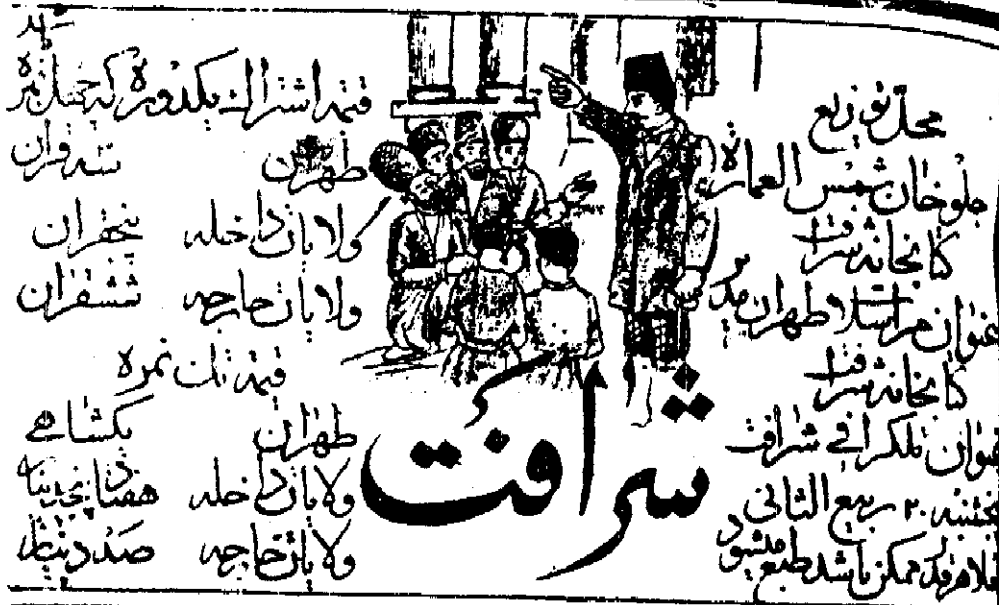 محل توزیع
جلوخان شمس العماره
کتابخانه شرافت
عنوان مراسلات طهران مدیر
کتابخانه شرافت
عنوان تلگرافی شرافت
پنجشنبه ۲۰ ربیع الثانی
ممکن باشد طبع میشود
شرافت
قیمة اشتراک یکدوره که چهل نمره
طهران سه قران
ولایات داخله پنجقران
ولایات خارجه ششقران
قیمة تک نمره
طهران یکشاهی
ولایات داخله هفتاد پنجدینار
ولایات خارجه صد دینار